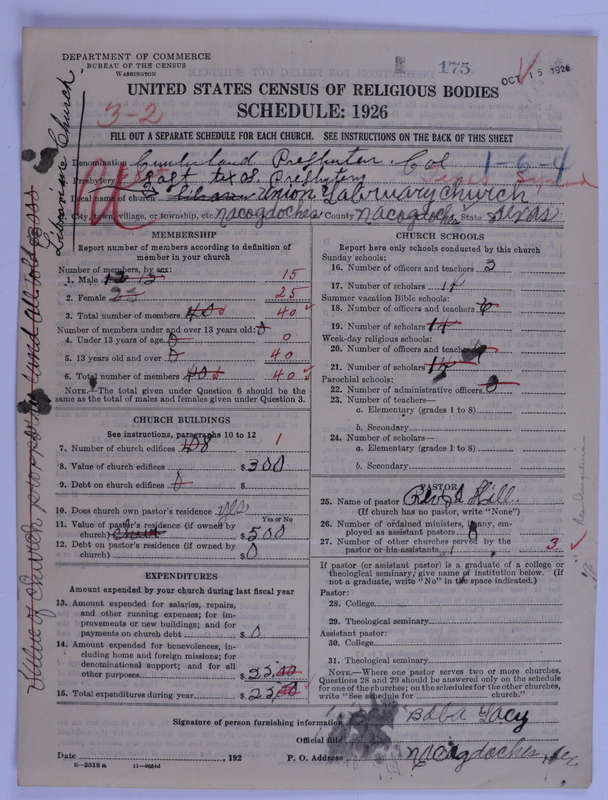 DEPARTMENT OF COMMERCE
BUREAU OF THE CENSUS
WASHINGTON
175
OCT 15 1926
UNITED STATES CENSUS OF RELIGIOUS BODIES
SCHEDULE: 1926
3-2
FILL OUT A SEPARATE SCHEDULE FOR EACH CHURCH. SEE INSTRUCTIONS ON THE BACK OF THIS SHEET
Denomination Cumberland Presbyterian Col 1-6-4
Presbytery East texas Presbytery Texas Synod
Local name of church union church
City, town, village, or township, etc. nacogdoches County nacogdoches State Texas
MEMBERSHIP
Report number of members according to definition of
member in your church
Number of members, by sex:
1. Male 15
2. Female 23 25
3. Total number of members 40 40
Number of members under and over 13 years old: 0
4. Under 13 years of age 0 0
5. 13 years old and over 0 40
6. Total number of members 40 40
NOTE.—The total given under Question 6 should be the
same as the total of males and females given under Question 3.
CHURCH BUILDINGS
See instructions, paragraphs 10 to 12
7. Number of church edifices 1
8. Value of church edifices $ 300
9. Debt on church edifices 0 $
10. Does church own pastor's residence yes
Yes or No
11. Value of pastor's residence (if owned by
church) $ 500
12. Debt on pastor's residence (if owned by
church) $ 0
EXPENDITURES
Amount expended by your church during last fiscal year
13. Amount expended for salaries, repairs,
and other running expenses; for im-
provements or new buildings; and for
payments on church debt $ 0
14. Amount expended for benevolences, in-
cluding home and foreign missions; for
denominational support; and for all
other purposes $ 22,00
15. Total expenditures during year $ 22,00
CHURCH SCHOOLS
Report here only schools conducted by this church
Sunday schools:
16. Number of officers and teachers 3
17. Number of scholars 14
Summer vacation Bible schools:
18. Number of officers and teachers 6
19. Number of scholars 14
Week-day religious schools:
20. Number of officers and teachers
21. Number of scholars
Parochial schools:
22. Number of administrative officers
23. Number of teachers—
a. Elementary (grades 1 to 8)
b. Secondary
24. Number of scholars—
a. Elementary (grades 1 to 8)
b. Secondary
PASTOR
25. Name of pastor Hill.
(If church has no pastor, write "None")
26. Number of ordained ministers, if any, em-
ployed as assistant pastors 0
27. Number of other churches served by the
pastor or his assistants 1 3
If pastor (or assistant pastor) is a graduate of a college or
theological seminary, give name of institution below. (If
not a graduate, write "No" in the space indicated.)
Pastor:
28. College
29. Theological seminary
Assistant pastor:
30. College
31. Theological seminary
NOTE.—Where one pastor serves two or more churches,
Questions 28 and 29 should be answered only on the schedule
for one of the churches; on the schedules for the other churches,
write "See schedule for church."
Signature of person furnishing information
Official title
Date , 192
P. O. Address nacogdoches, tex
8-2518 a